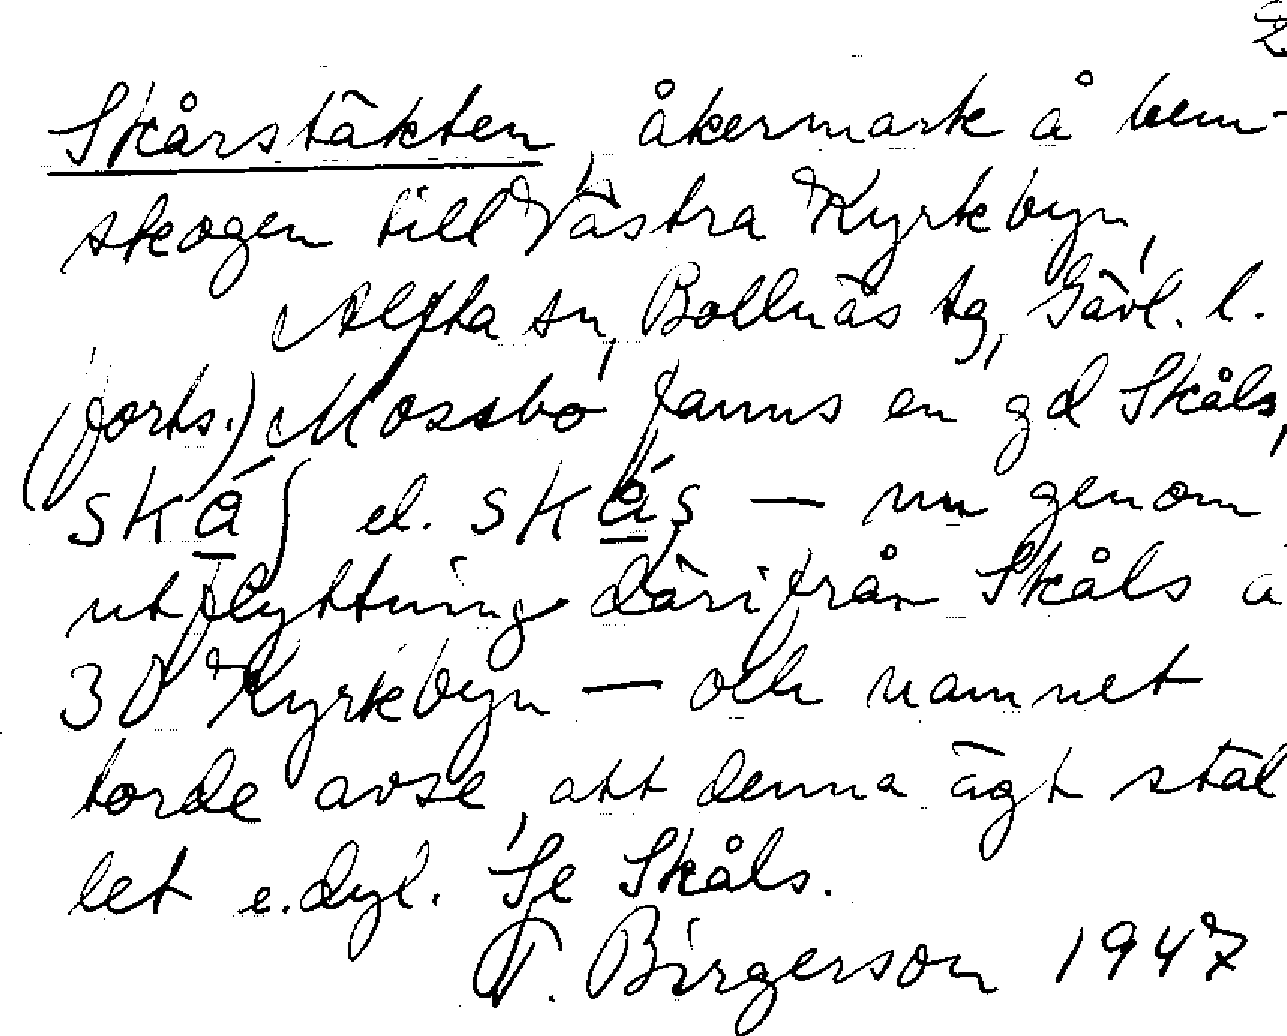 2
Skårstäkten, åkermark å hem-
skogen till Västra Kyrkbyn,
Alfta sn, Bollnäs tg, Gävl. l.
(forts.) Mossbo fanns en gd Skåls,
skå̱ʃ el. skå̱s — nu genom
utflyttning därifrån Skåls å
30 Kyrkbyn — och namnet
torde avse, att denna ägt stäl
let e.dyl. Se Skåls.
F. Birgerson 1947